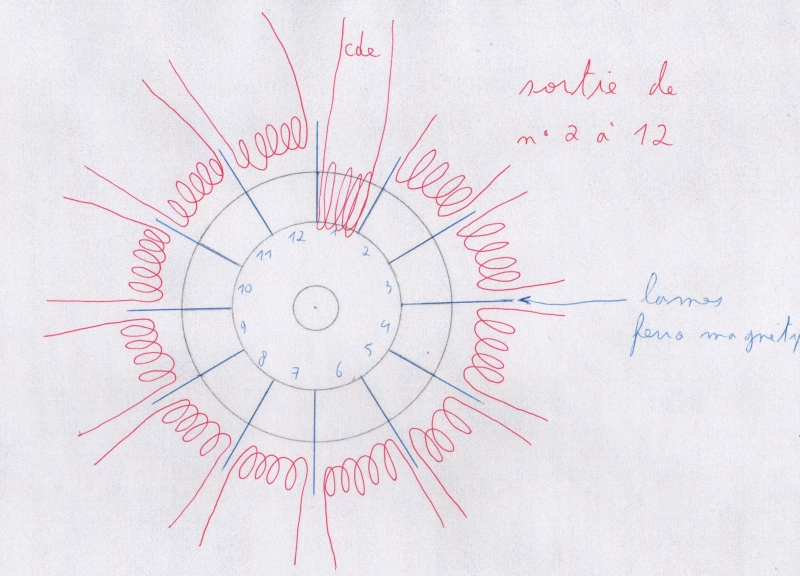 cde
sortie de
n° 2 à 12
12
1
2
3
4
5
6
7
8
9
10
11
lames
ferro magnétiq